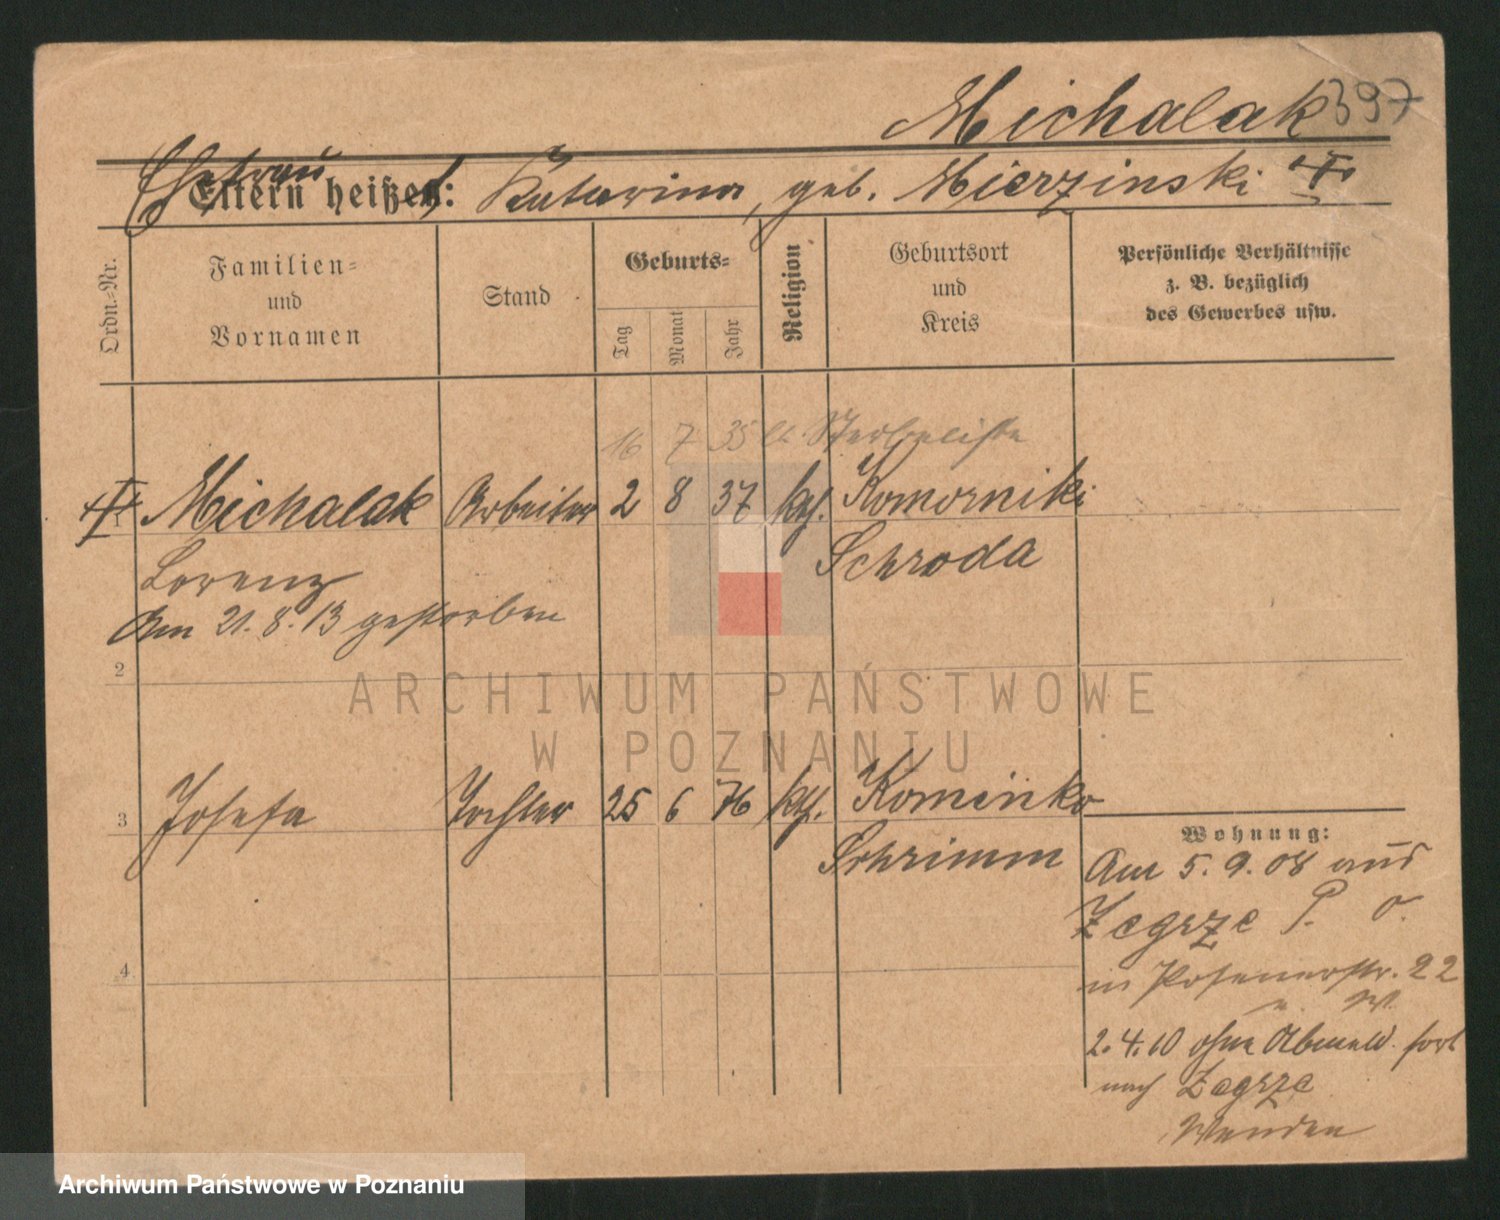 Michalak 397
Ehefrau
Eltern heißen: Katarina, geb. Mierzinski
Ordn.-Nr.
Familien-
und
Vornamen
Stand
Geburts-
Tag
Monat
Jahr
Religion
Geburtsort
und
Kreis
Persönliche Verhältnisse
z. B. bezüglich
des Gewerbes usw.
16 7 35 lt. Sterbeliste
1 Michalak Arbeiter 2 8 37 kth. Komorniki
Schroda
Lorenz
Am 21. 8. 13 gestorben
2
3 Josefa Tochter 25 6 76 kth. Kominko
Schrimm
Wohnung:
Am 5. 9. 08 aus
Zegrze P. O.
in Posenerstr. 22
2. 4. 10 ohne Abmeld. fort
nach Zegrze
4
ARCHIWUM PAŃSTWOWE
W POZNANIU
Archiwum Państwowe w Poznaniu